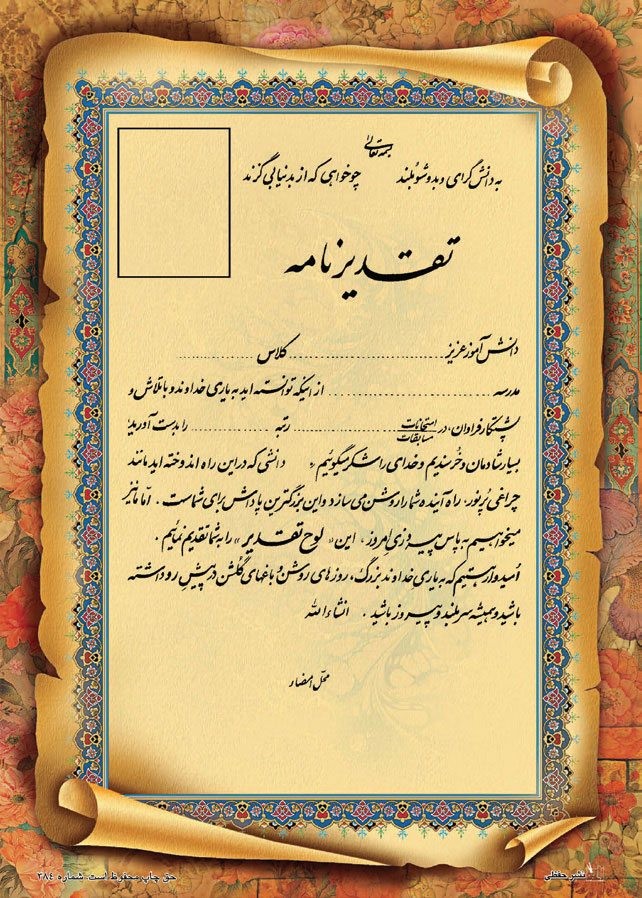 بسمه تعالی
به دانش گرای و بدو شو بلند چو خواهی که از بد نیابی گزند
تقدیرنامه
دانش آموز عزیز .......................... کلاس ....................
مدرسه .......................... از اینکه توانسته اید به یاری خداوند و با تلاش و
پشتکار فراوان، در امتحانات مسابقات .................... رتبه .............. را بدست آورید؛
بسیار شادمان و خرسندیم و خدای را شکر میگوئیم. دانشی که در این راه اندوخته اید مانند
چراغی پُرنور، راه آینده شما را روشن می سازد و این بزرگترین پاداش برای شماست. امّا ما نیز
میخواهیم به پاس پیروزی امروز، این «لوح تقدیر» را به شما تقدیم نمائیم.
اُمیدوار هستیم که به یاری خداوند بزرگ، روزهای روشن و باغهای گلشن در پیش رو داشته
باشید و همیشه سربلند و پیروز باشید. انشاءالله
محلّ امضاء
نشر حفظی
حق چاپ محفوظ است. شماره ۳۸۴